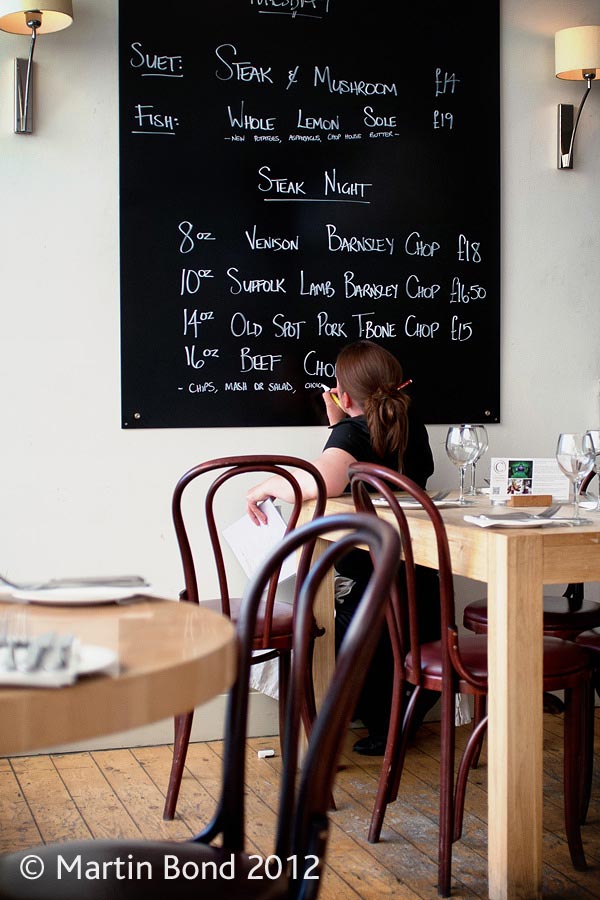 TUESDAY
SUET: STEAK & MUSHROOM £14
FISH: WHOLE LEMON SOLE £19
- NEW POTATOES, ASPARAGUS, CHOP HOUSE BUTTER -
STEAK NIGHT
8oz VENISON BARNSLEY CHOP £18
10oz SUFFOLK LAMB BARNSLEY CHOP £16.50
14oz OLD SPOT PORK T-BONE CHOP £15
16oz BEEF CHO
- CHIPS, MASH OR SALAD,
© Martin Bond 2012